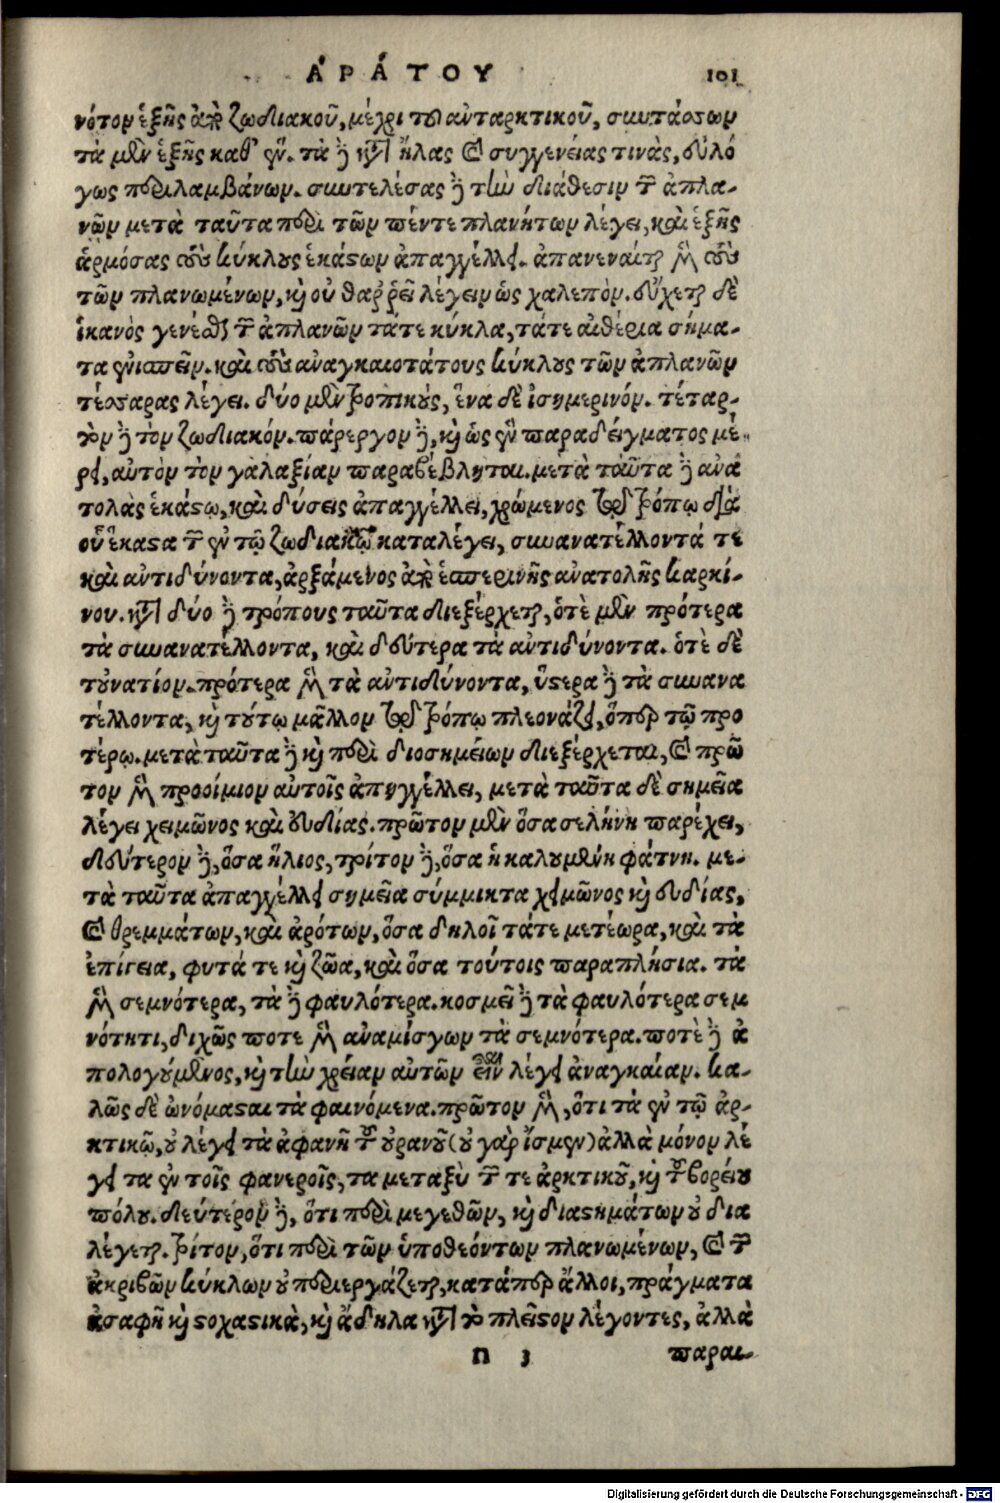 ΑΡΑΤΟΥ 101
νότον ἑξῆς ἀπὸ ζωδιακοῦ, μέχρι τοῦ ἀνταρκτικοῦ, συντάσσων
τὰ μὲν ἑξῆς καθ' ἕν. τὰ δὲ κατ' ἴλας καὶ συγγενείας τινὰς, εὐλό
γως περιλαμβάνων. συντελέσας δὲ τὴν διάθεσιν τῶν ἀπλα-
νῶν μετὰ ταῦτα περὶ τῶν πέντε πλανήτων λέγει, καὶ ἑξῆς
ἁρμόσας τοὺς κύκλους ἑκάστων ἀπαγγέλλει. ἀπαναίνεται μὲν τοὺς
τῶν πλανωμένων, καὶ οὐ θαῤῥεῖ λέγειν ὡς χαλεπὸν. εὔχεται δὲ
ἱκανὸς γενέσθαι τῶν ἀπλανῶν τάτε κύκλα, τάτε αἰθέρια σήμα-
τα ἐνισπεῖν. καὶ τοὺς ἀναγκαιοτάτους κύκλους τῶν ἀπλανῶν
τέσσαρας λέγει. δύο μὲν τροπικοὺς, ἕνα δὲ ἰσημερινόν. τέταρ-
τον δὲ τὸν ζωδιακόν. πάρεργον δὲ, καὶ ὡς ἐν παραδείγματος μέ-
ρει, αὐτὸν τὸν γαλαξίαν παραβέβληται. μετὰ ταῦτα δὲ ἀνα
τολὰς ἑκάστῳ, καὶ δύσεις ἀπαγγέλλει, χρώμενος τῷ τρόπῳ διὰ
οὗ ἕκαστα τῶν ἐν τῷ ζωδιακῷ καταλέγει, συνανατέλλοντά τε
καὶ ἀντιδύνοντα, ἀρξάμενος ἀπὸ ἑσπερινῆς ἀνατολῆς καρκί-
νου. κατὰ δύο δὲ τρόπους ταῦτα διεξέρχεται, ὁτὲ μὲν πρότερα
τὰ συνανατέλλοντα, καὶ δεύτερα τὰ ἀντιδύνοντα. ὁτὲ δὲ
τοὐναντίον. πρότερα μὲν τὰ ἀντιδύνοντα, ὕστερα δὲ τὰ συνανα
τέλλοντα, καὶ τούτῳ μᾶλλον τῷ τρόπῳ πλεονάζει, ὅπερ τῷ προ
τέρῳ. μετὰ ταῦτα δὲ καὶ περὶ διοσημείων διεξέρχεται, καὶ πρῶ
τον μὲν προοίμιον αὐτοῖς ἀπηγγέλλει, μετὰ ταῦτα δὲ σημεῖα
λέγει χειμῶνος καὶ εὐδίας. πρῶτον μὲν ὅσα σελήνη παρέχει,
δεύτερον δὲ, ὅσα ἥλιος, τρίτον δὲ, ὅσα ἡ καλουμένη φάτνη. με-
τὰ ταῦτα ἀπαγγέλλει σημεῖα σύμμικτα χειμῶνος καὶ εὐδίας,
καὶ θρεμμάτων, καὶ ἀρότων, ὅσα δηλοῖ τάτε μετέωρα, καὶ τὰ
ἐπίγεια, φυτά τε καὶ ζῶα, καὶ ὅσα τούτοις παραπλήσια. τὰ
μὲν σεμνότερα, τὰ δὲ φαυλότερα. κοσμεῖ δὲ τὰ φαυλότερα σεμ
νότητι, διχῶς ποτε μὲν ἀναμίσγων τὰ σεμνότερα. ποτὲ δὲ ἀ
πολογούμενος, καὶ τὴν χρείαν αὐτῶν εἶναι λέγει ἀναγκαίαν. κα-
λῶς δὲ ὠνόμασται τὰ φαινόμενα. πρῶτον μὲν, ὅτι τὰ ἐν τῷ ἀρ-
κτικῷ, οὐ λέγει τὰ ἀφανῆ τοῦ οὐρανοῦ (οὐ γὰρ ἴσμεν) ἀλλὰ μόνον λέ
γει τα ἐν τοῖς φανεροῖς, τα μεταξὺ τοῦ τε ἀρκτικοῦ, καὶ τοῦ βορείου
πόλου. δεύτερον δὲ, ὅτι περὶ μεγεθῶν, καὶ διαστημάτων οὐ δια
λέγεται. τρίτον, ὅτι περὶ τῶν ὑποθεόντων πλανωμένων, καὶ τῶν
ἀκριβῶν κύκλων οὐ περιεργάζεται, κατάπερ ἄλλοι, πράγματα
ἀσαφῆ καὶ στοχαστικὰ, καὶ ἄδηλα κατὰ τὸ πλεῖστον λέγοντες, ἀλλὰ
n 3 παραι-
Digitalisierung gefördert durch die Deutsche Forschungsgemeinschaft - DFG